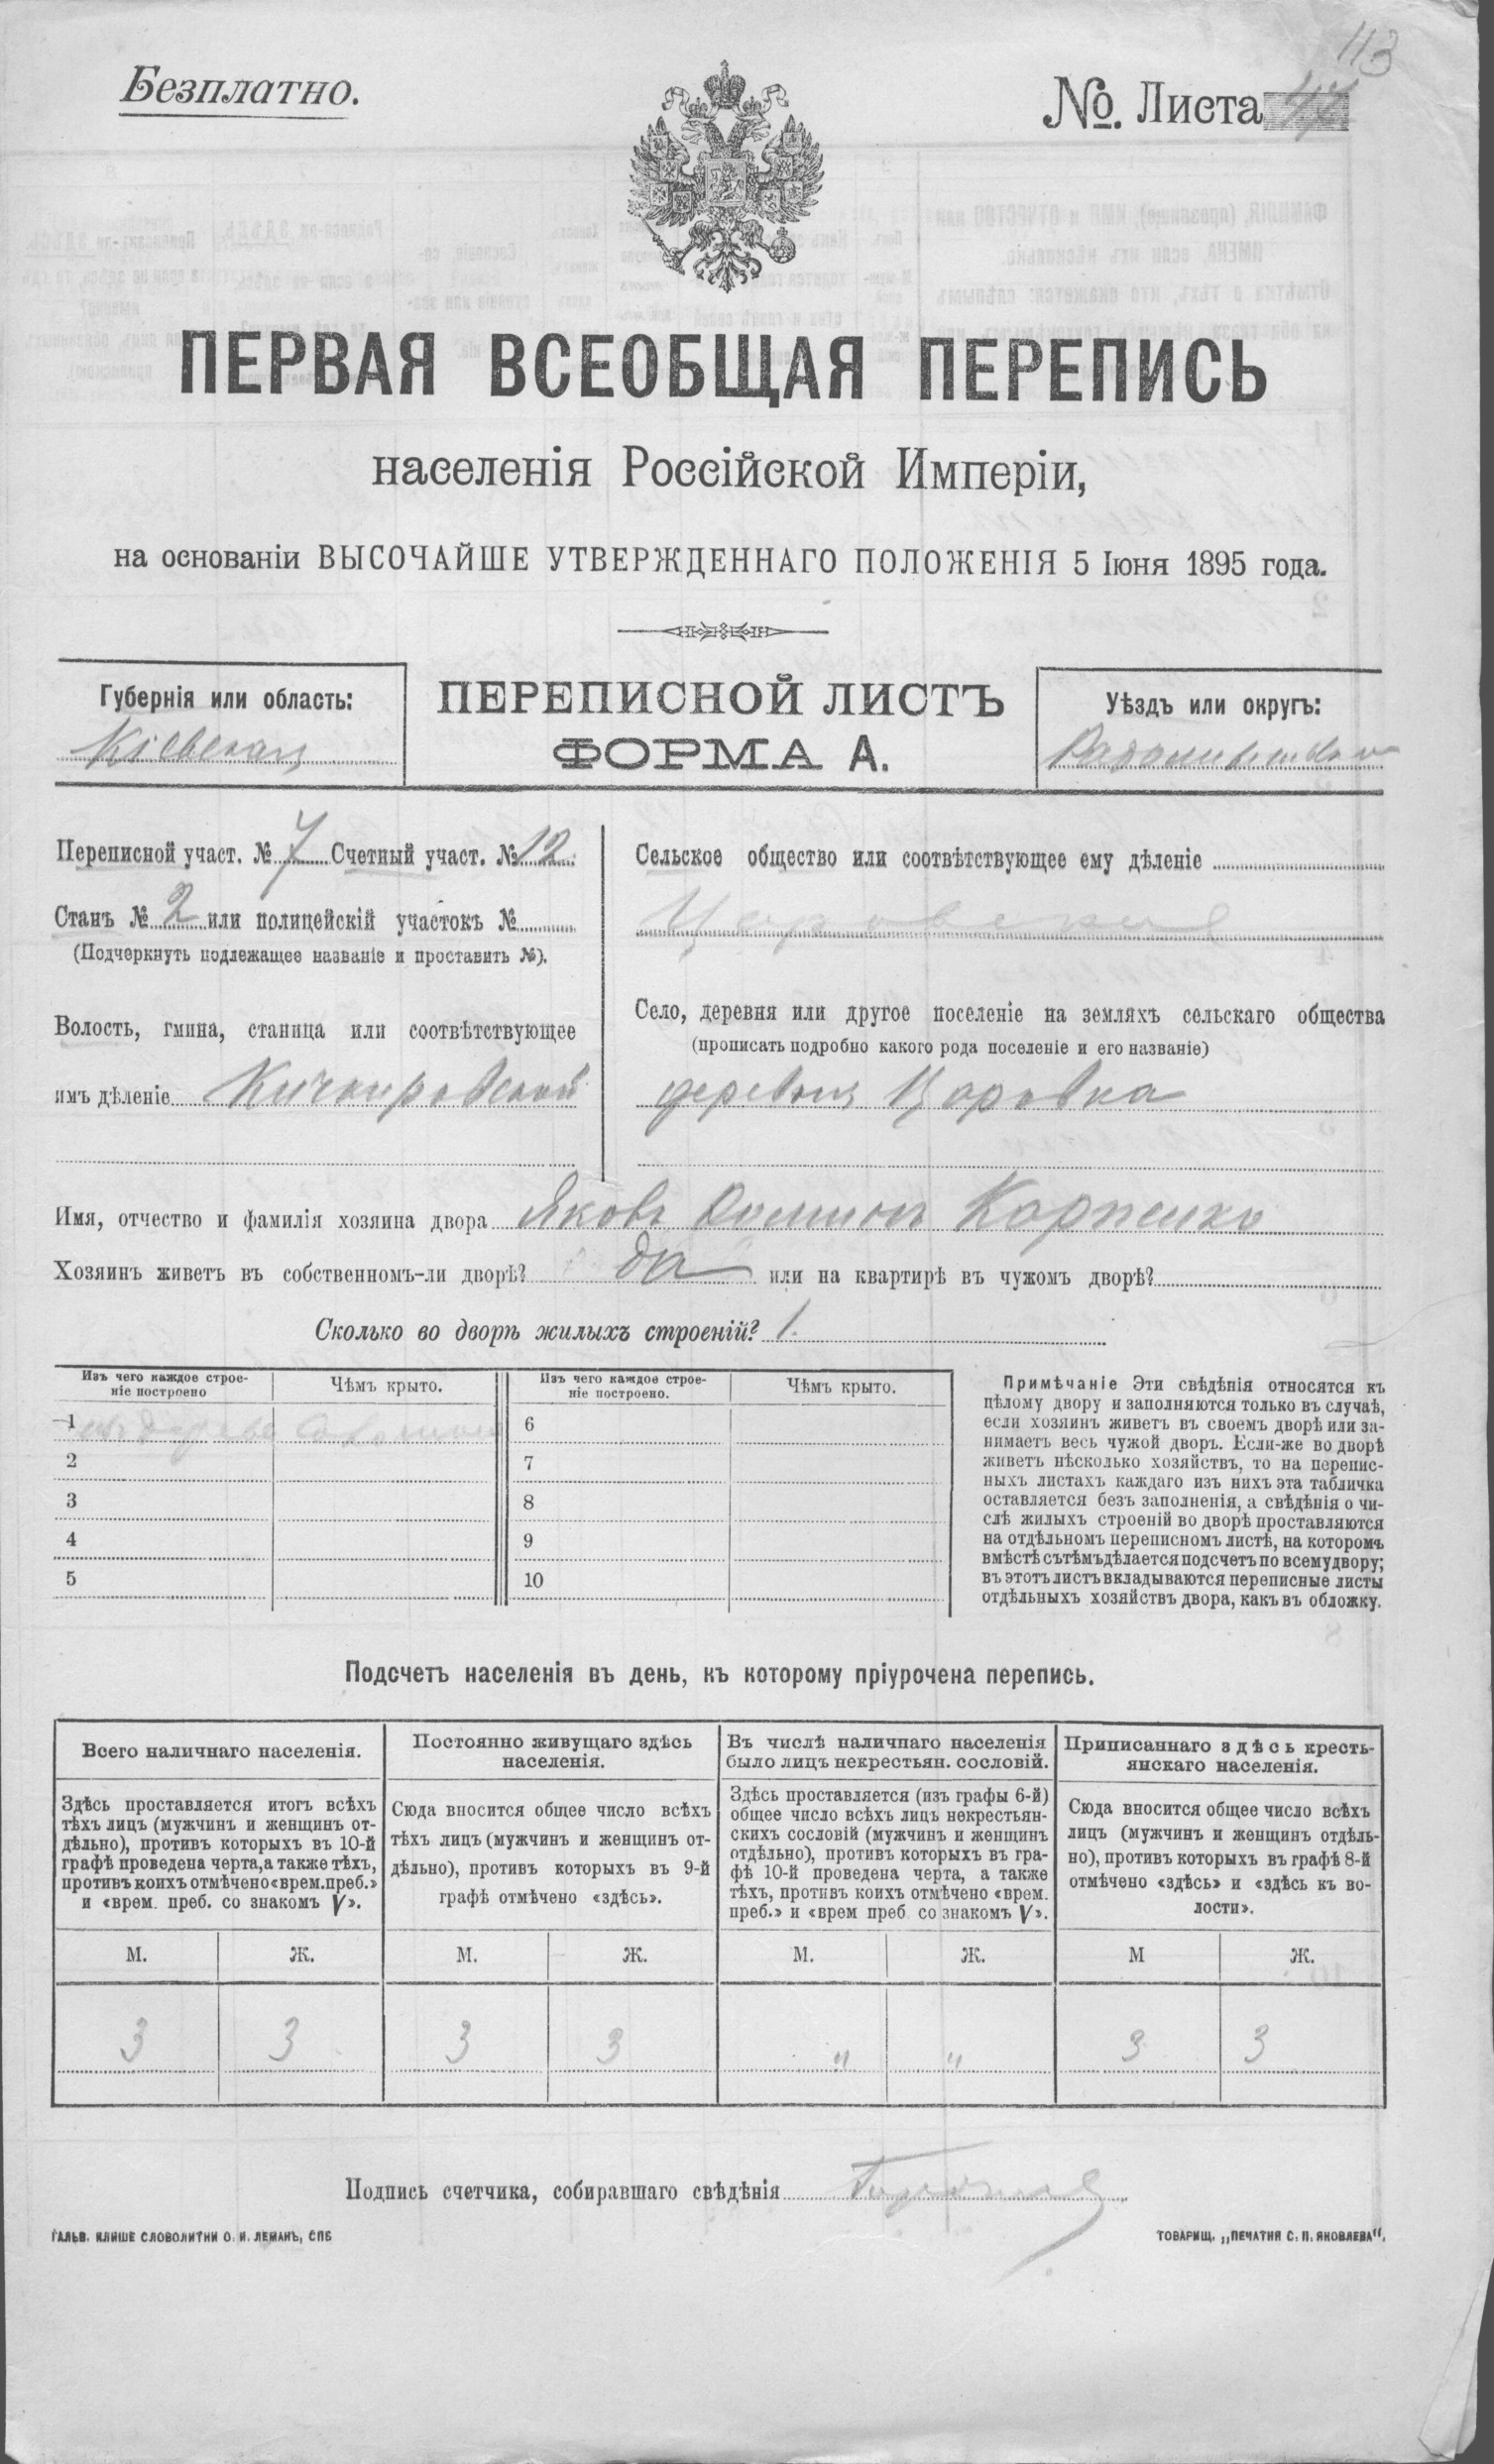 113
Безплатно.
№. Листа 47
ПЕРВАЯ ВСЕОБЩАЯ ПЕРЕПИСЬ
населенія Россійской Имперіи,
на основаніи ВЫСОЧАЙШЕ УТВЕРЖДЕННАГО ПОЛОЖЕНІЯ 5 Іюня 1895 года.
Губернія или область:
Кіевская
ПЕРЕПИСНОЙ ЛИСТЪ
ФОРМА А.
Уѣздъ или округъ:
Переписной участ. № 7 Счетный участ. № 12
Станъ № 2 или полицейскій участокъ №
(Подчеркнуть подлежащее названіе и проставить №).
Волость, гмина, станица или соотвѣтствующее
имъ дѣленіе Кичкировской
Сельское общество или соотвѣтствующее ему дѣленіе
Царовское
Село, деревня или другое поселеніе на земляхъ сельскаго общества
(прописать подробно какого рода поселеніе и его названіе)
деревня Царовка
Имя, отчество и фамилія хозяина двора Яковъ Карпенко
Хозяинъ живетъ въ собственномъ-ли дворѣ? да или на квартирѣ въ чужомъ дворѣ?
Сколько во дворѣ жилыхъ строеній? 1.
Изъ чего каждое строе-
ніе построено
Чѣмъ крыто.
Изъ чего каждое строе-
ніе построено.
Чѣмъ крыто.
1 изъ дерева соломой 6
2 7
3 8
4 9
5 10
Примѣчаніе Эти свѣдѣнія относятся къ
цѣлому двору и заполняются только въ случаѣ,
если хозяинъ живетъ въ своемъ дворѣ или за-
нимаетъ весь чужой дворъ. Если-же во дворѣ
живетъ нѣсколько хозяйствъ, то на перепис-
ныхъ листахъ каждаго изъ нихъ эта табличка
оставляется безъ заполненія, а свѣдѣнія о чи-
слѣ жилыхъ строеній во дворѣ проставляются
на отдѣльномъ переписномъ листѣ, на которомъ
вмѣстѣ съ тѣмъ дѣлается подсчетъ по всему двору;
въ этотъ листъ вкладываются переписные листы
отдѣльныхъ хозяйствъ двора, какъ въ обложку.
Подсчетъ населенія въ день, къ которому пріурочена перепись.
Всего наличнаго населенія.
Здѣсь проставляется итогъ всѣхъ
тѣхъ лицъ (мужчинъ и женщинъ от-
дѣльно), противъ которыхъ въ 10-й
графѣ проведена черта, а также тѣхъ,
противъ коихъ отмѣчено «врем. преб.»
и «врем. преб. со знакомъ V».
Постоянно живущаго здѣсь
населенія.
Сюда вносится общее число всѣхъ
тѣхъ лицъ (мужчинъ и женщинъ от-
дѣльно), противъ которыхъ въ 9-й
графѣ отмѣчено «здѣсь».
Въ числѣ наличнаго населенія
было лицъ некрестьян. сословій.
Здѣсь проставляется (изъ графы 6-й)
общее число всѣхъ лицъ некрестьян-
скихъ сословій (мужчинъ и женщинъ
отдѣльно), противъ которыхъ въ гра-
фѣ 10-й проведена черта, а также
тѣхъ, противъ коихъ отмѣчено «врем.
преб.» и «врем преб. со знакомъ V».
Приписаннаго здѣсь кресть-
янскаго населенія.
Сюда вносится общее число всѣхъ
лицъ (мужчинъ и женщинъ отдѣль-
но), противъ которыхъ въ графѣ 8-й
отмѣчено «здѣсь» и «здѣсь къ во-
лости».
М. Ж. М. Ж. М. Ж. М Ж.
3 3 3 3 " " 3 3
Подпись счетчика, собиравшаго свѣдѣнія
ГАЛЬВ. КЛИШЕ СЛОВОЛИТНИ О. И. ЛЕМАНЪ, СПБ
ТОВАРИЩ. „ПЕЧАТНЯ С. П. ЯКОВЛЕВА".